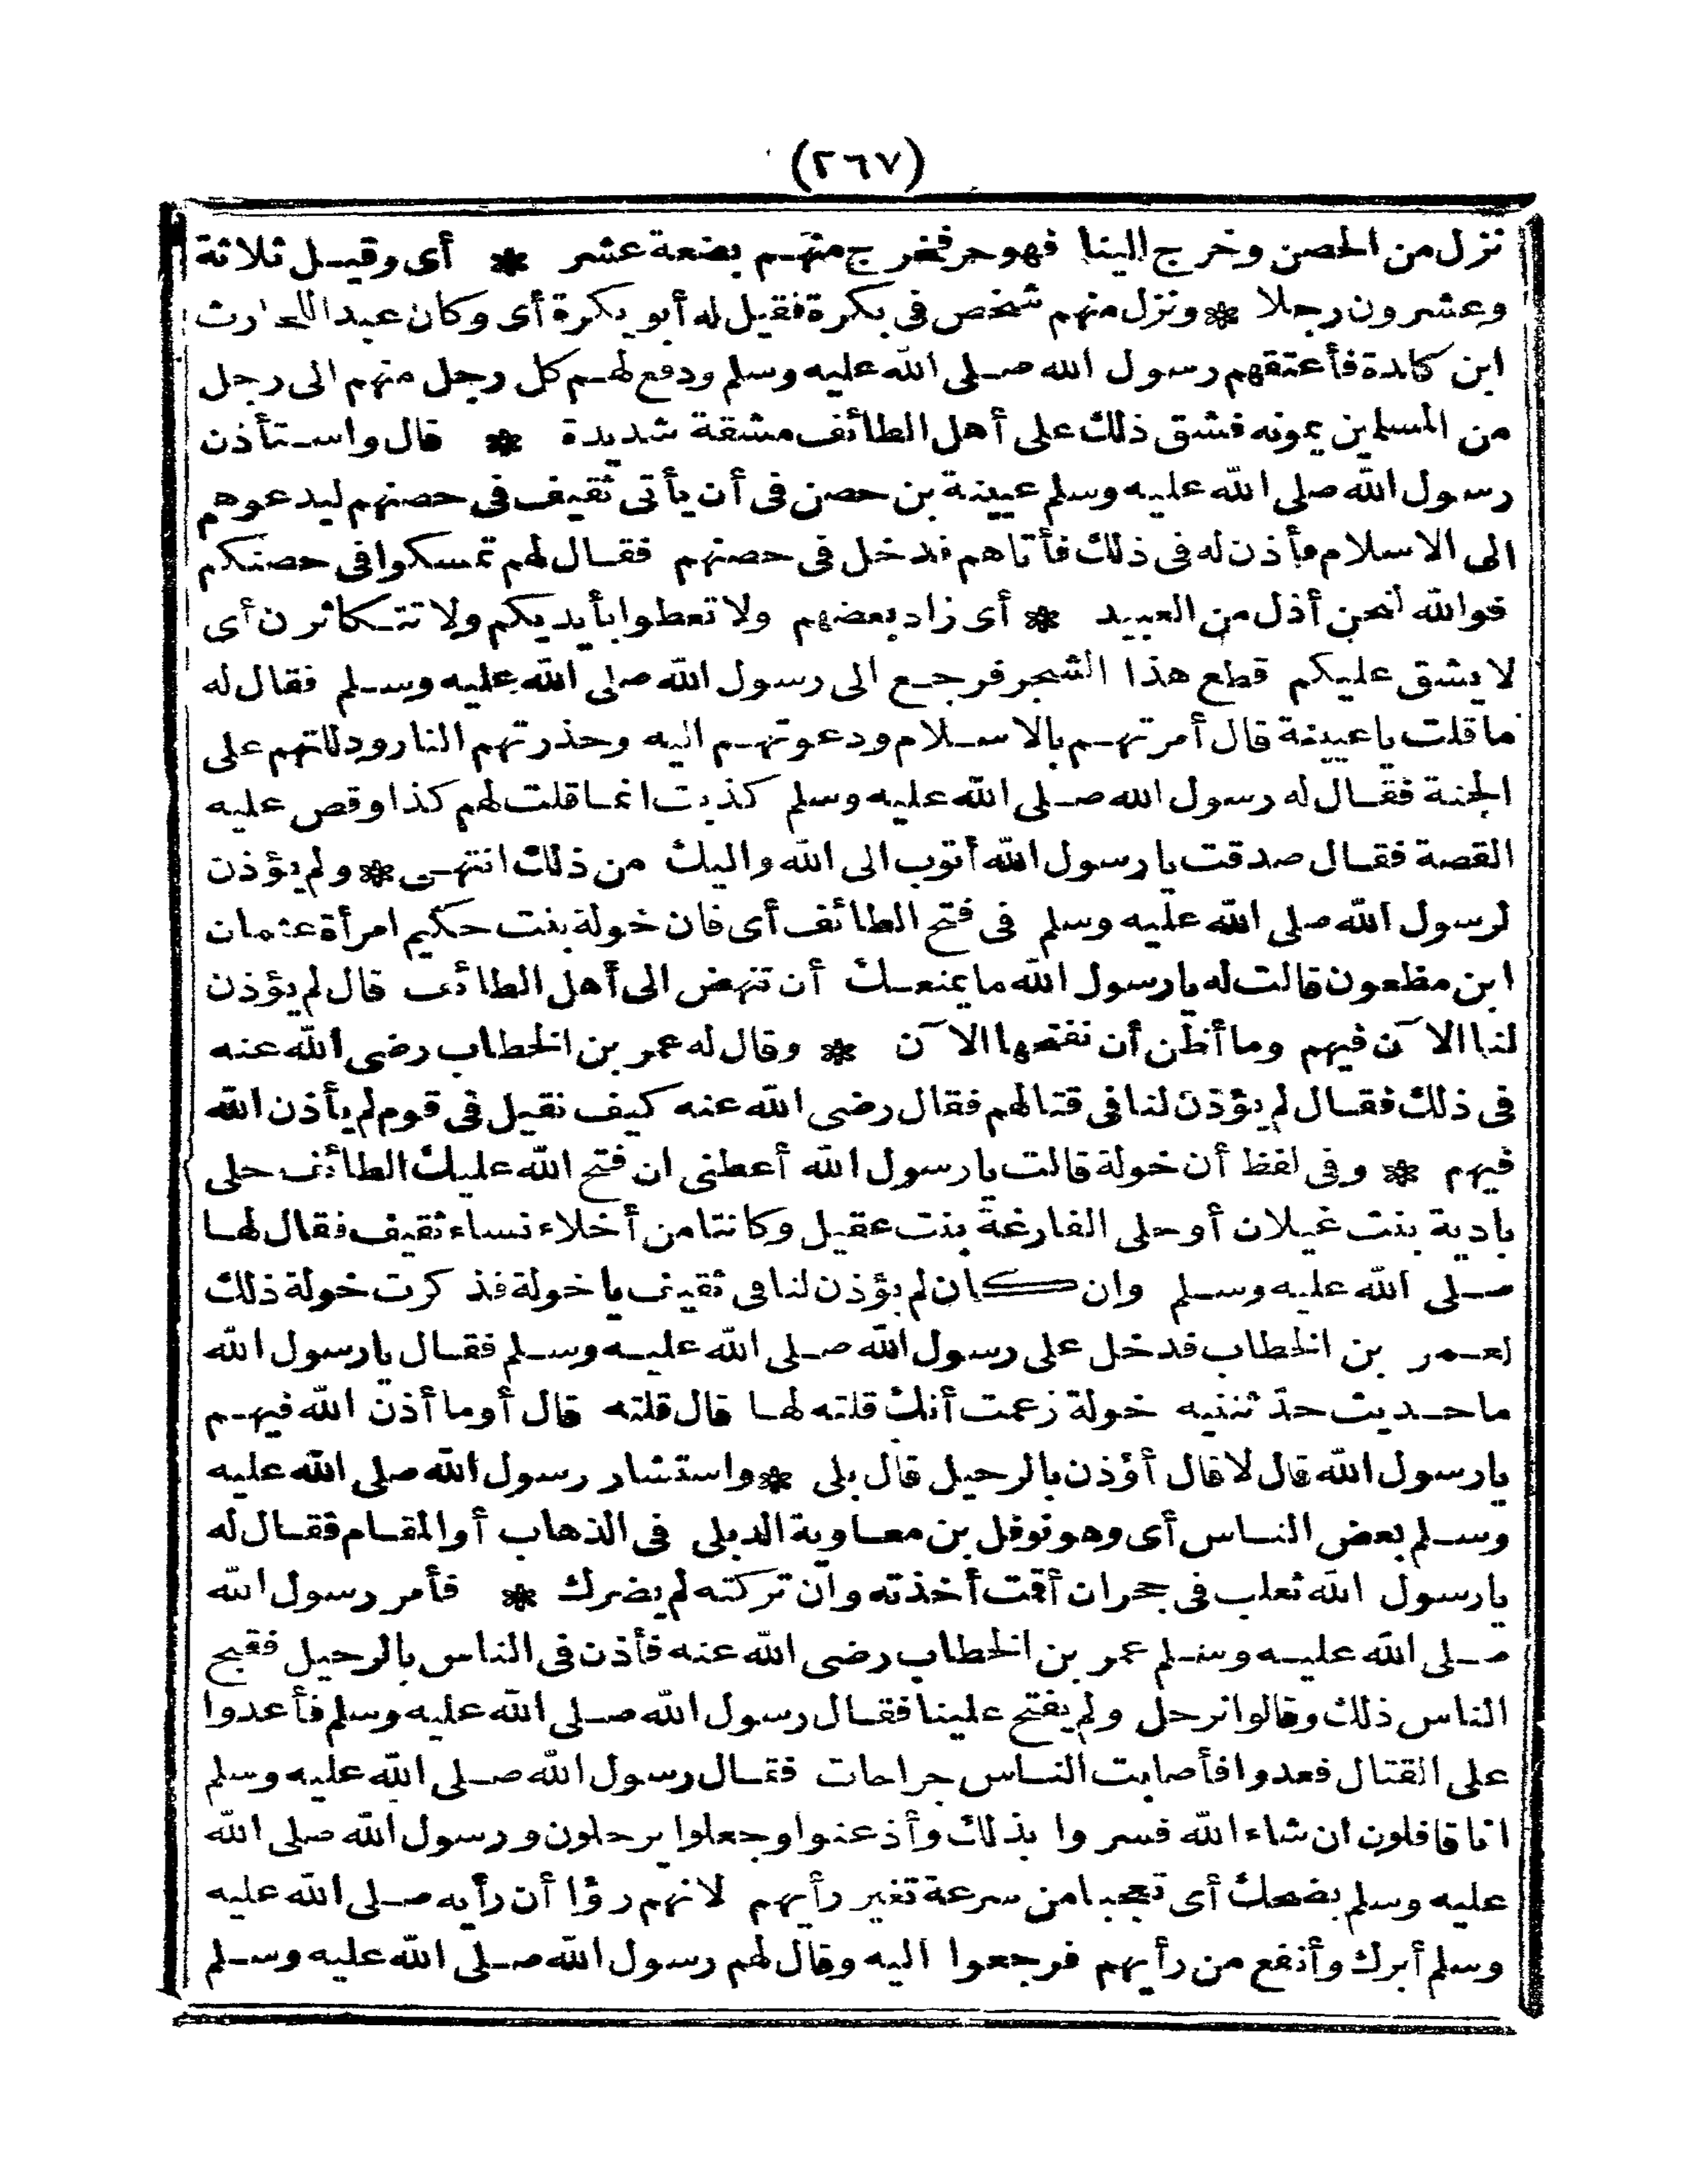 (٢٦٧)
نزل من الحصن وخرج الينا فهو حر فخرج منهم بضعة عشر * أى وقيل ثلاثة
وعشرون رجلا * ونزل منهم شخص فى بكرة فقيل له أبو بكرة أى وكان عبدا للحارث
ابن كلدة فأعتقهم رسول الله صلى الله عليه وسلم ودفع لهم كل رجل منهم الى رجل
من المسلمين يمونه فشق ذلك على أهل الطائف مشقة شديدة * قال واستأذن
رسول الله صلى الله عليه وسلم عيينة بن حصن فى أن يأتى ثقيف فى حصنهم ليدعوهم
الى الاسلام فأذن له فى ذلك فأتاهم فدخل فى حصنهم فقال لهم تمسكوا فى حصنكم
فوالله لنحن أذل من العبيد * أى زاد بعضهم ولا تعطوا بأيديكم ولا تتكاثرن أى
لا يشق عليكم قطع هذا الشجر فرجع الى رسول الله صلى الله عليه وسلم فقال له
ما قلت يا عيينة قال أمرتهم بالاسلام ودعوتهم اليه وحذرتهم النار ودللتهم على
الجنة فقال له رسول الله صلى الله عليه وسلم كذبت انما قلت لهم كذا وقص عليه
القصة فقال صدقت يا رسول الله أتوب الى الله واليك من ذلك انتهى * ولم يؤذن
لرسول الله صلى الله عليه وسلم فى فتح الطائف أى فان خولة بنت حكيم امرأة عثمان
ابن مظعون قالت له يا رسول الله ما يمنعك أن تنهض الى أهل الطائف قال لم يؤذن
لنا الآن فيهم وما أظن أن نفتحها الآن * وقال له عمر بن الخطاب رضى الله عنه
فى ذلك فقال لم يؤذن لنا فى قتالهم فقال رضى الله عنه كيف نقبل فى قوم لم يأذن الله
فيهم * وفى لفظ أن خولة قالت يا رسول الله أعطنى ان فتح الله عليك الطائف حلى
بادية بنت غيلان أو حلى الفارغة بنت عقيل وكانتا من أخلاء نساء ثقيف فقال لها
صلى الله عليه وسلم وان كان لم يؤذن لنا فى ثقيف يا خولة فذكرت خولة ذلك
لعمر بن الخطاب فدخل على رسول الله صلى الله عليه وسلم فقال يا رسول الله
ما حديث حدّثتنيه خولة زعمت أنك قلته لها قال قلته قال أو ما أذن الله فيهم
يا رسول الله قال لا قال أؤذن بالرحيل قال بلى * واستشار رسول الله صلى الله عليه
وسلم بعض الناس أى وهو نوفل بن معاوية الديلى فى الذهاب أو المقام فقال له
يا رسول الله ثعلب فى جحر ان أقمت أخذته وان تركته لم يضرك * فأمر رسول الله
صلى الله عليه وسلم عمر بن الخطاب رضى الله عنه فأذن فى الناس بالرحيل فقبح
الناس ذلك وقالوا نرحل ولم يفتح علينا فقال رسول الله صلى الله عليه وسلم فأعدوا
على القتال فعدوا فأصابت الناس جراحات فقال رسول الله صلى الله عليه وسلم
انا قافلون ان شاء الله فسروا بذلك وأذعنوا وجعلوا يرحلون ورسول الله صلى الله
عليه وسلم يضحك أى تعجبا من سرعة تغير رأيهم لانهم رؤا أن رأيه صلى الله عليه
وسلم أبرك وأنفع من رأيهم فرجعوا اليه وقال لهم رسول الله صلى الله عليه وسلم